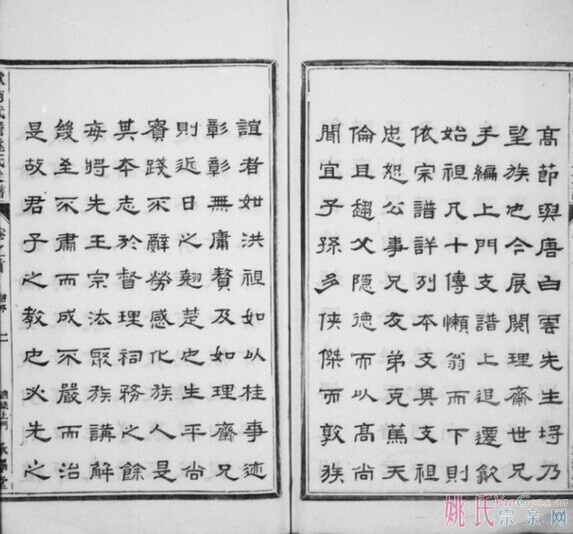 高節與唐白雲先生埒乃
望族也今展閱理齋世兄
手編上門支譜上追遷歙
始祖凡十傳懶翁而下則
依宗譜詳列本支其支祖
忠恕公事兄友弟克篤天
倫且趨父隱德而以高尚
聞宜子孫多俠傑而敦族
誼者如洪祖如以桂事迹
彰彰無庸贅及如理齋兄
則近日之翹楚也生平尚
實踐不辭勞感化族人是
其本志於督理祠務之餘
每將先王宗法聚族講解
幾至不肅而成不嚴而治
是故君子之教也必先之
卷之首
姚氏宗亲网